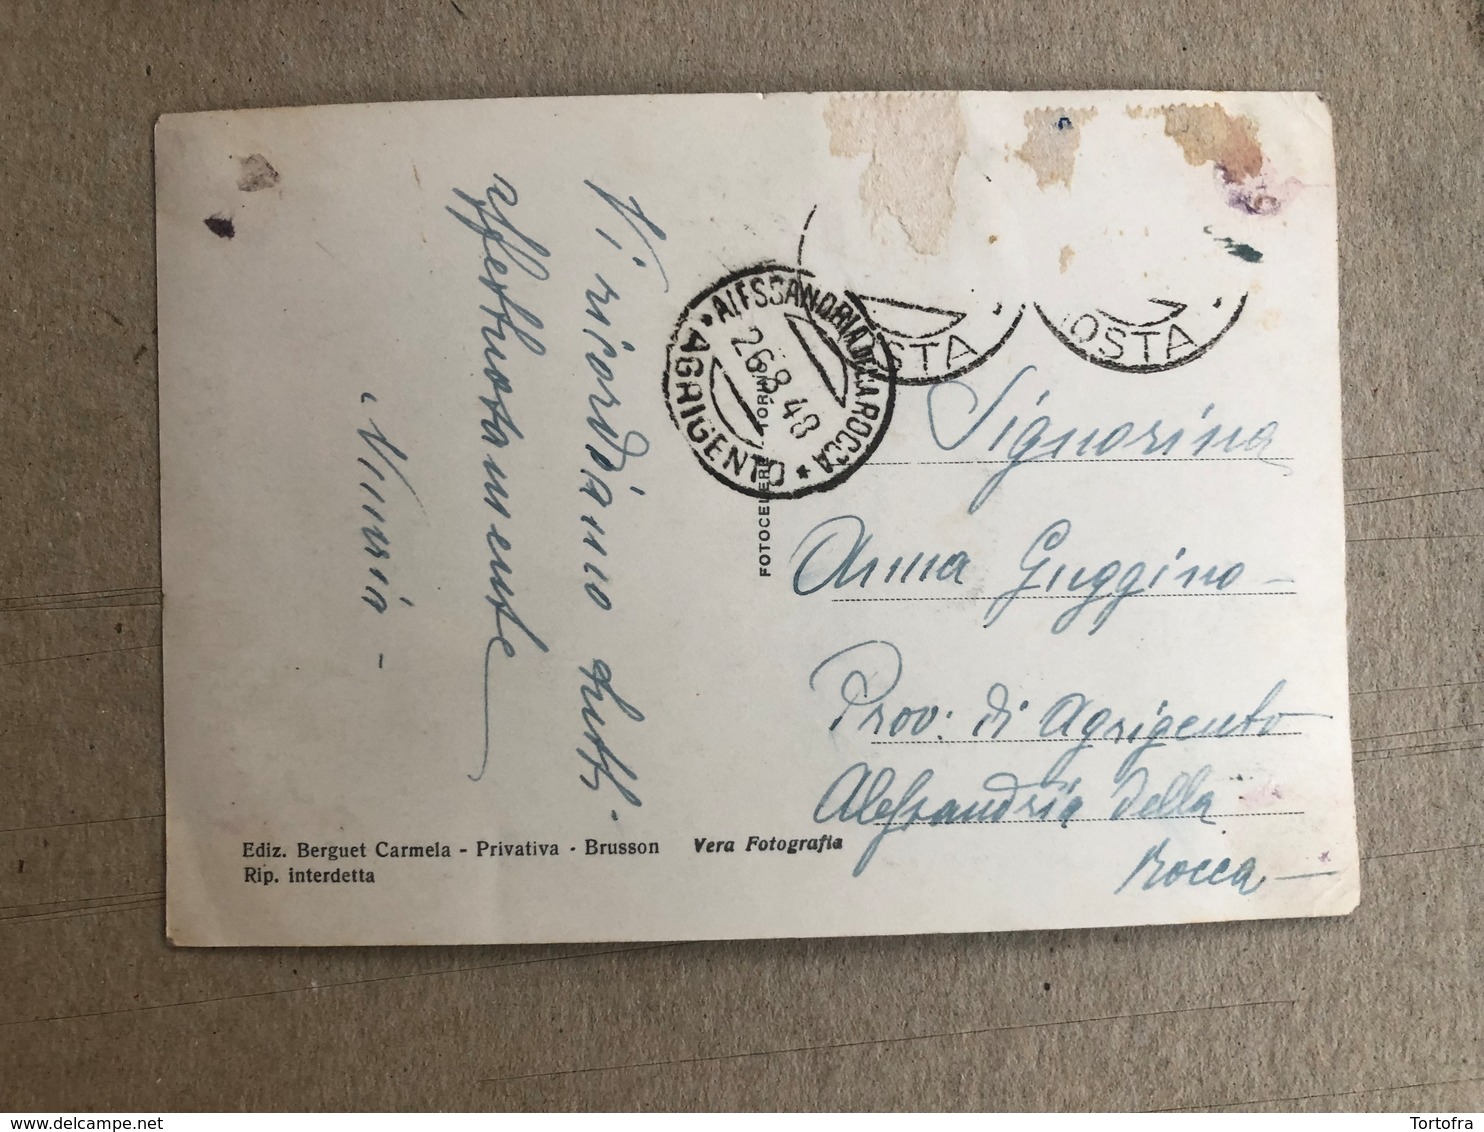 Vi ricordiamo tutti
affettuosamente
Ninria -
ALESSANDRIA DELLA ROCCA
26.8.48
* AGRIGENTO *
OSTA
OSTA
FOTOCELERE TORINO
Signorina
Anna Guggino -
Prov: di Agrigento
Alessandria della
Rocca -
Ediz. Berguet Carmela - Privativa - Brusson Vera Fotografia
Rip. interdetta
Tortofra